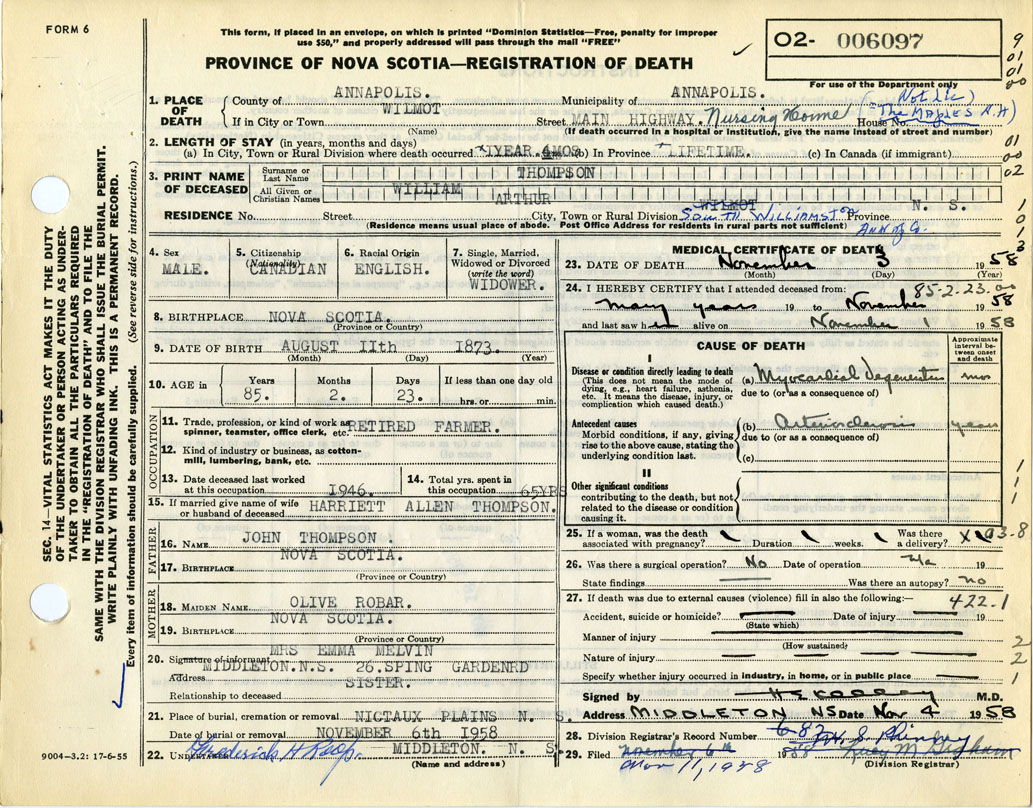 FORM 6
This form, if placed in an envelope, on which is printed "Dominion Statistics—Free, penalty for improper
use $50," and properly addressed will pass through the mail "FREE"
PROVINCE OF NOVA SCOTIA—REGISTRATION OF DEATH
02- 006097
For use of the Department only
9
01
01
00
1. PLACE OF DEATH
County of ANNAPOLIS. Municipality of ANNAPOLIS.
If in City or Town WILMOT Street MAIN HIGHWAY. Nursing Home House No. (Not Lic)
(The Maples N.H)
(Name) (If death occurred in a hospital or institution, give the name instead of street and number)
2. LENGTH OF STAY (in years, months and days)
(a) In City, Town or Rural Division where death occurred 1YEAR. 4MOS (b) In Province LIFETIME. (c) In Canada (if immigrant)
01
00
02
3. PRINT NAME OF DECEASED
Surname or Last Name THOMPSON
All Given or Christian Names WILLIAM ARTHUR
RESIDENCE No. Street City, Town or Rural Division WILMOT South Williamston Province N. S.
(Residence means usual place of abode. Post Office Address for residents in rural parts not sufficient) Ann of Co.
1
0
1
3
4. Sex MALE.
5. Citizenship (Nationality) CANADIAN
6. Racial Origin ENGLISH.
7. Single, Married, Widowed or Divorced (write the word) WIDOWER.
8. BIRTHPLACE NOVA SCOTIA.
(Province or Country)
9. DATE OF BIRTH AUGUST 11th 1873.
(Month) (Day) (Year)
10. AGE in Years 85. Months 2. Days 23. If less than one day old hrs. or min.
OCCUPATION
11. Trade, profession, or kind of work as spinner, teamster, office clerk, etc. RETIRED FARMER.
12. Kind of industry or business, as cotton-mill, lumbering, bank, etc.
13. Date deceased last worked at this occupation 1946.
14. Total yrs. spent in this occupation 65YRS
15. If married give name of wife or husband of deceased HARRIETT ALLEN THOMPSON.
FATHER
16. NAME JOHN THOMPSON.
17. BIRTHPLACE NOVA SCOTIA.
(Province or Country)
MOTHER
18. MAIDEN NAME OLIVE ROBAR.
19. BIRTHPLACE NOVA SCOTIA.
(Province or Country)
20. Signature of informant MRS EMMA MELVIN
Address MIDDLETON.N.S. 26.SPING GARDENRD
Relationship to deceased SISTER.
21. Place of burial, cremation or removal NICTAUX PLAINS N. S.
Date of burial or removal NOVEMBER 6th 1958
22. UNDERTAKER Frederick H Roop. MIDDLETON. N. S
(Name and address)
MEDICAL CERTIFICATE OF DEATH
23. DATE OF DEATH November 3 1958
(Month) (Day) (Year)
85-2-23.00
24. I HEREBY CERTIFY that I attended deceased from:
many years 19 to November 1958
and last saw him alive on November 1 1958
CAUSE OF DEATH
Approximate interval between onset and death
I
Disease or condition directly leading to death
(This does not mean the mode of dying, e.g., heart failure, asthenia, etc. It means the disease, injury, or complication which caused death.)
(a) Myocardial degeneration mos
due to (or as a consequence of)
Antecedent causes
Morbid conditions, if any, giving rise to the above cause, stating the underlying condition last.
(b) Arteriosclerosis years
due to (or as a consequence of)
(c)
II
Other significant conditions
contributing to the death, but not related to the disease or condition causing it.
1
1
1
25. If a woman, was the death associated with pregnancy? Duration weeks. Was there a delivery? X 93-8
26. Was there a surgical operation? No Date of operation 19
State findings Was there an autopsy? no
27. If death was due to external causes (violence) fill in also the following:— 422.1
Accident, suicide or homicide? Date of injury 19
(State which)
Manner of injury
(How sustained)
Nature of injury
Specify whether injury occurred in industry, in home, or in public place
2
2
1
Signed by M.D.
Address MIDDLETON NS Date Nov 4 1958
28. Division Registrar's Record Number 682
29. Filed November 6th 1958
Nov 11, 1958
(Division Registrar)
SEC. 14—VITAL STATISTICS ACT MAKES IT THE DUTY
OF THE UNDERTAKER OR PERSON ACTING AS UNDER-
TAKER TO OBTAIN ALL THE PARTICULARS REQUIRED
IN THE "REGISTRATION OF DEATH" AND TO FILE THE
SAME WITH THE DIVISION REGISTRAR WHO SHALL ISSUE THE BURIAL PERMIT.
WRITE PLAINLY WITH UNFADING INK. THIS IS A PERMANENT RECORD.
Every item of information should be carefully supplied. (See reverse side for instructions.)
9004—3.2: 17-6-55